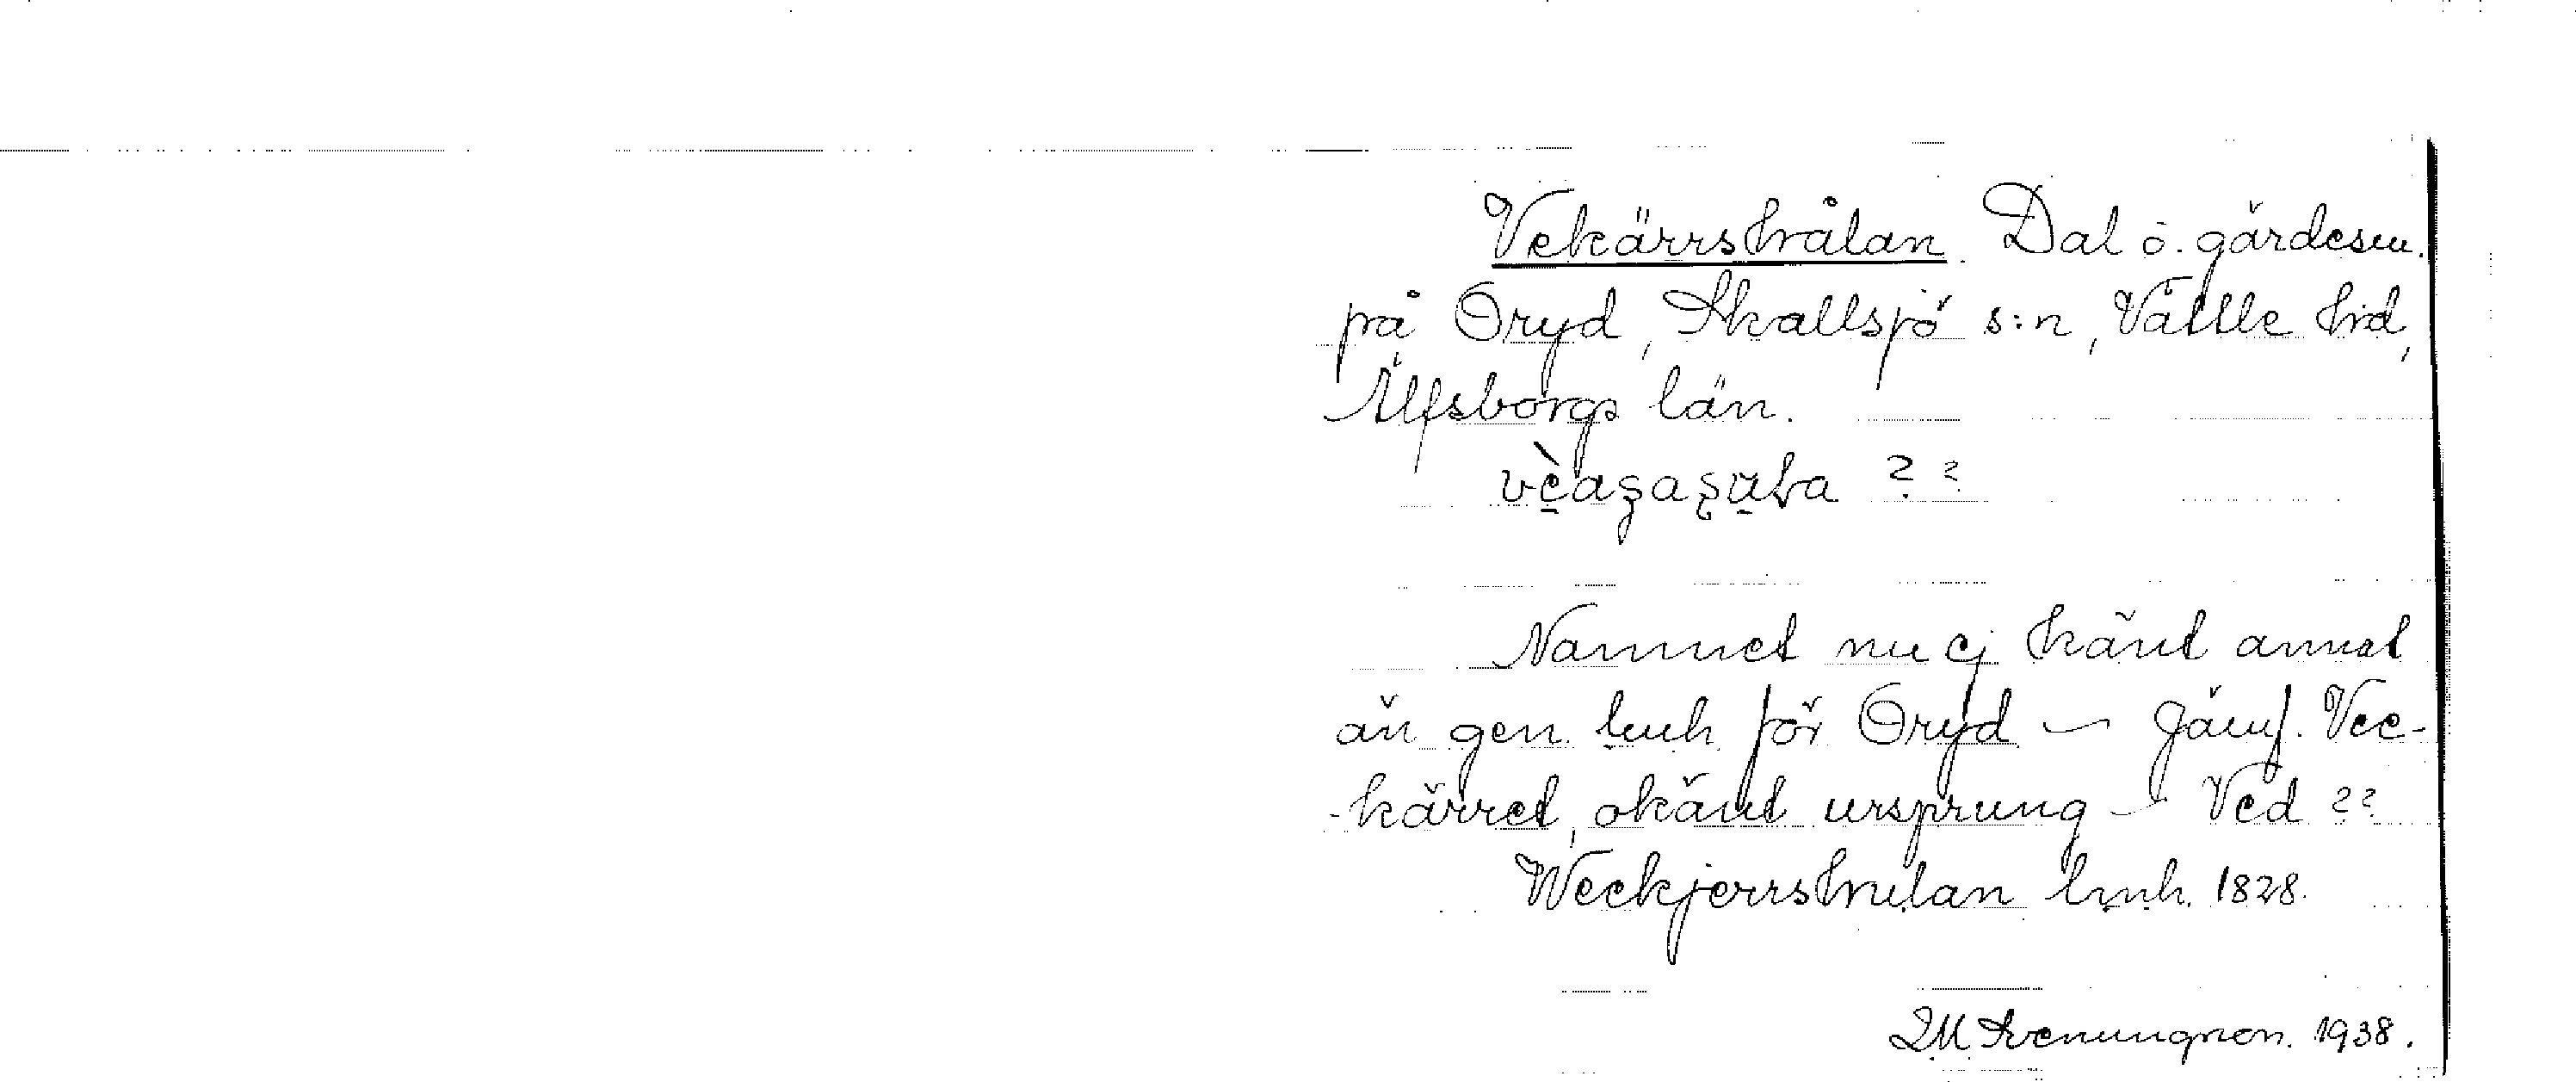 Vekärrstrålan. Dal ö. gärdesm.
på Öryd, Skallsjö s:n, Vättle hrd,
Älfsborgs län.
??
Namnet nu ej känt annat
än gen. lmh för Öryd – Jämf. Vee-
-kärret, okänt ursprung – Ved ??
Weckjerrstrulan lmh. 1828.
1938.